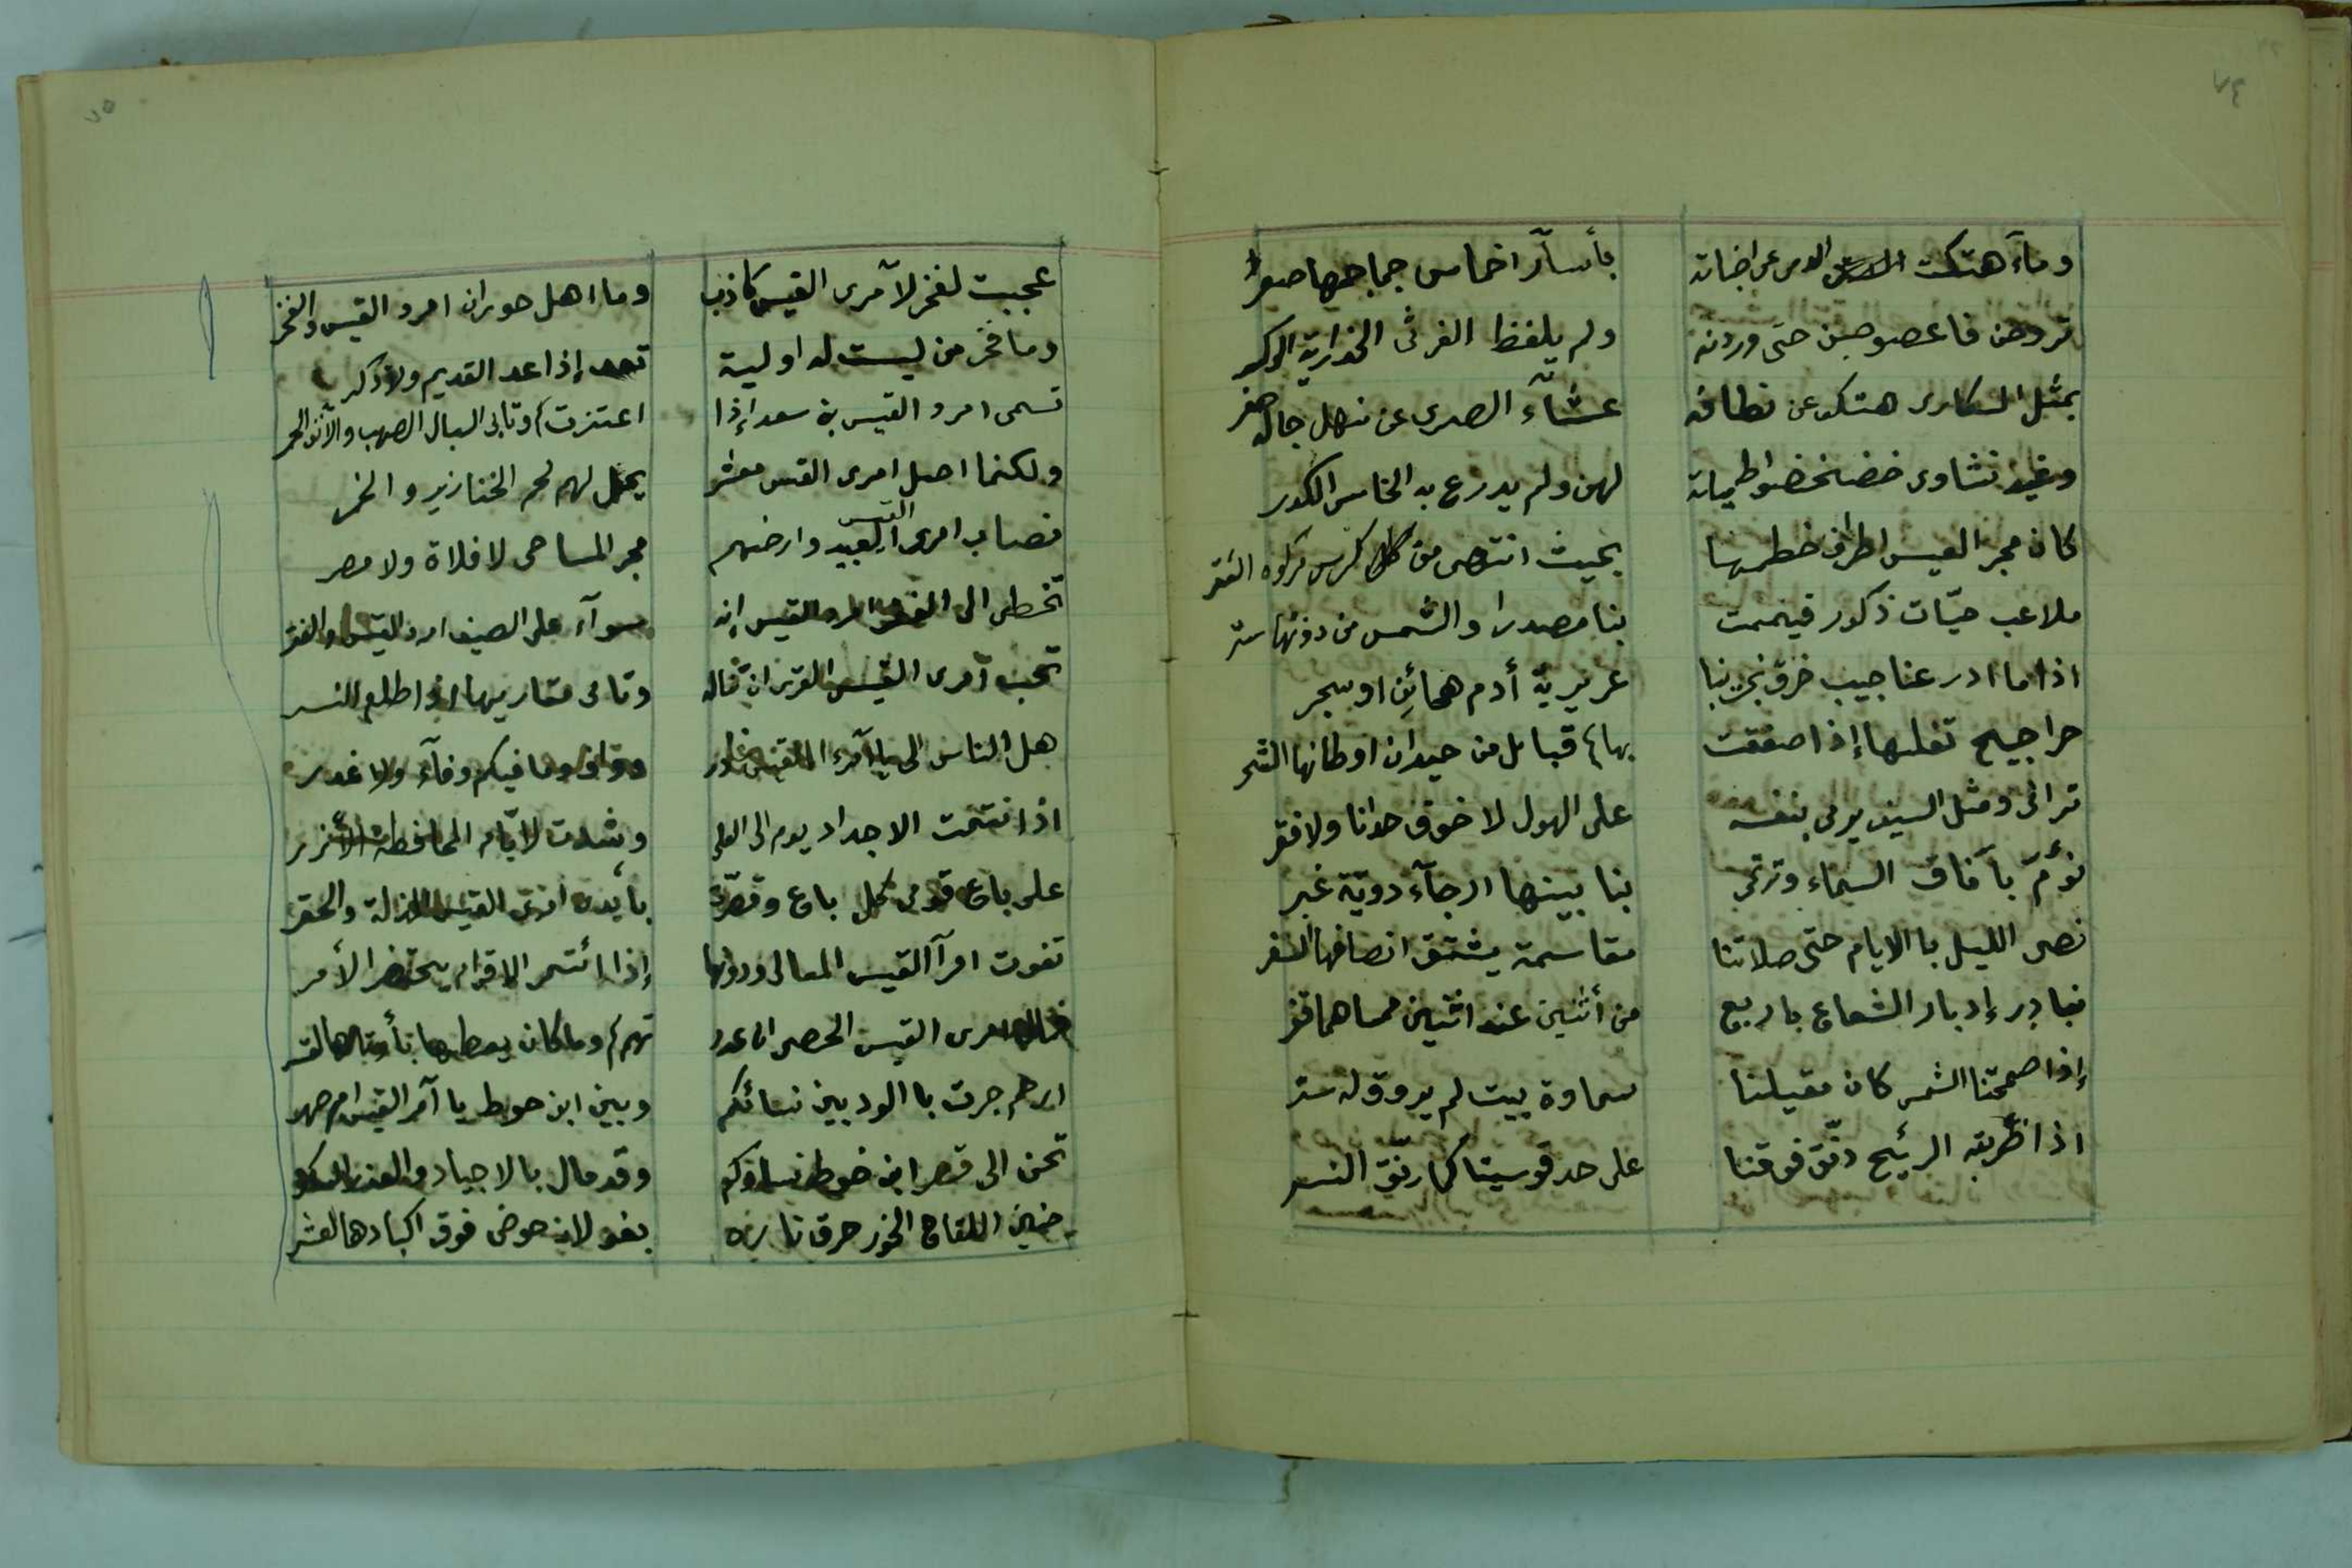 ٧٤
ومآء هتكت الدمن عن اجناته بأسآر اخماس جماجمها صعر
تروحن فاعصوصبن حتى وردنه ولم يلفظ الغرثى الخدارية الوكر
بمثل السكارى هتكو عن نطافه عشآء الصدى عن منهل جاله
وغيد نشاوى خضخضوا طيباته لهن ولم يدرج به الخامس الكدر
كان مجر العيس اطراف خطمها بحيث انتهى من كرس مركوه العقر
ملاعب حيّات ذكور فيممت بنا مصدرا والشمس من دونها ستر
اذا ما ادر عنا جيب خرق نجت بنا غريرية أدم هجائن او سجر
حراجيج تغليها إذا صفقت بها قبائل من حيدان اوطانها الشحر
ترانى ومثل السيف يرمى بنفسه على الهول لا خوف حدانا ولا فقر
نؤمّ بآفاق السماء وترتمى بنا بينها ارجآء دويّة غبر
نصى الليل بالايام حتى صلاتنا مقاسمة يشتق انصافها السفر
نبادر إدبار الشعاع باربع من أثنين عند اثنين ممساهما قفر
إذا صمحتنا الشمس كان مقيلنا سماوة بيت لم يروق له ستر
اذا ظربته الريح رنّق فوقنا على حد قوسينا كما رنّق النسر
٧٥
عجبت لفخر لآمرى القيس كاذب وما اهل حوران امرو القيس والفخر
وما فخر من ليست له اولية تعد إذا عد القديم ولا ذكر
تسمى امرو القيس بن سعد إذا اعتزت وتابى السبال الصهب والآنف الحمر
ولكنما اصل امرى القيس معشر يحل لهم لحم الخنازير والخمر
نصاب امرى القيس العبيد وارضهم مجر المساحى لا فلاة ولا مصر
تخطى الى القفر امرو القيس إنه سوآء على الضيف امرو القيس والقفر
تحب آمرى القيس القرى ان تناله وتابى مقاريها اذا طلع النسر
هل الناس إلا يا آمرء القيس غادر وواف وما فيكم وفآء ولا غدر
اذا نتمت الاجداد يوم الى العلى وشدت لايّام المحافظة الأزر
على باع قومى كل باع وقصّرت بأيدى امرى القيس المذلة والحقر
تفوت امرآ القيس المعالى ودونها إذا ائتمر الاقوام يحتضر الأمر
امرى القيس الحصى ان عدد تهم وما كان يعطيها بأوتارها القسر
ارحم جرت بالود بين نسائكم وبين ابن حوط يا آمر القيس ام صهر
تحن الى قصر ابن خوط نساؤكم وقد مال بالاجياد والعذر السكر
حنين اللقاح الخور حرق ناره بغولان حوضى فوق اكبادها العشر